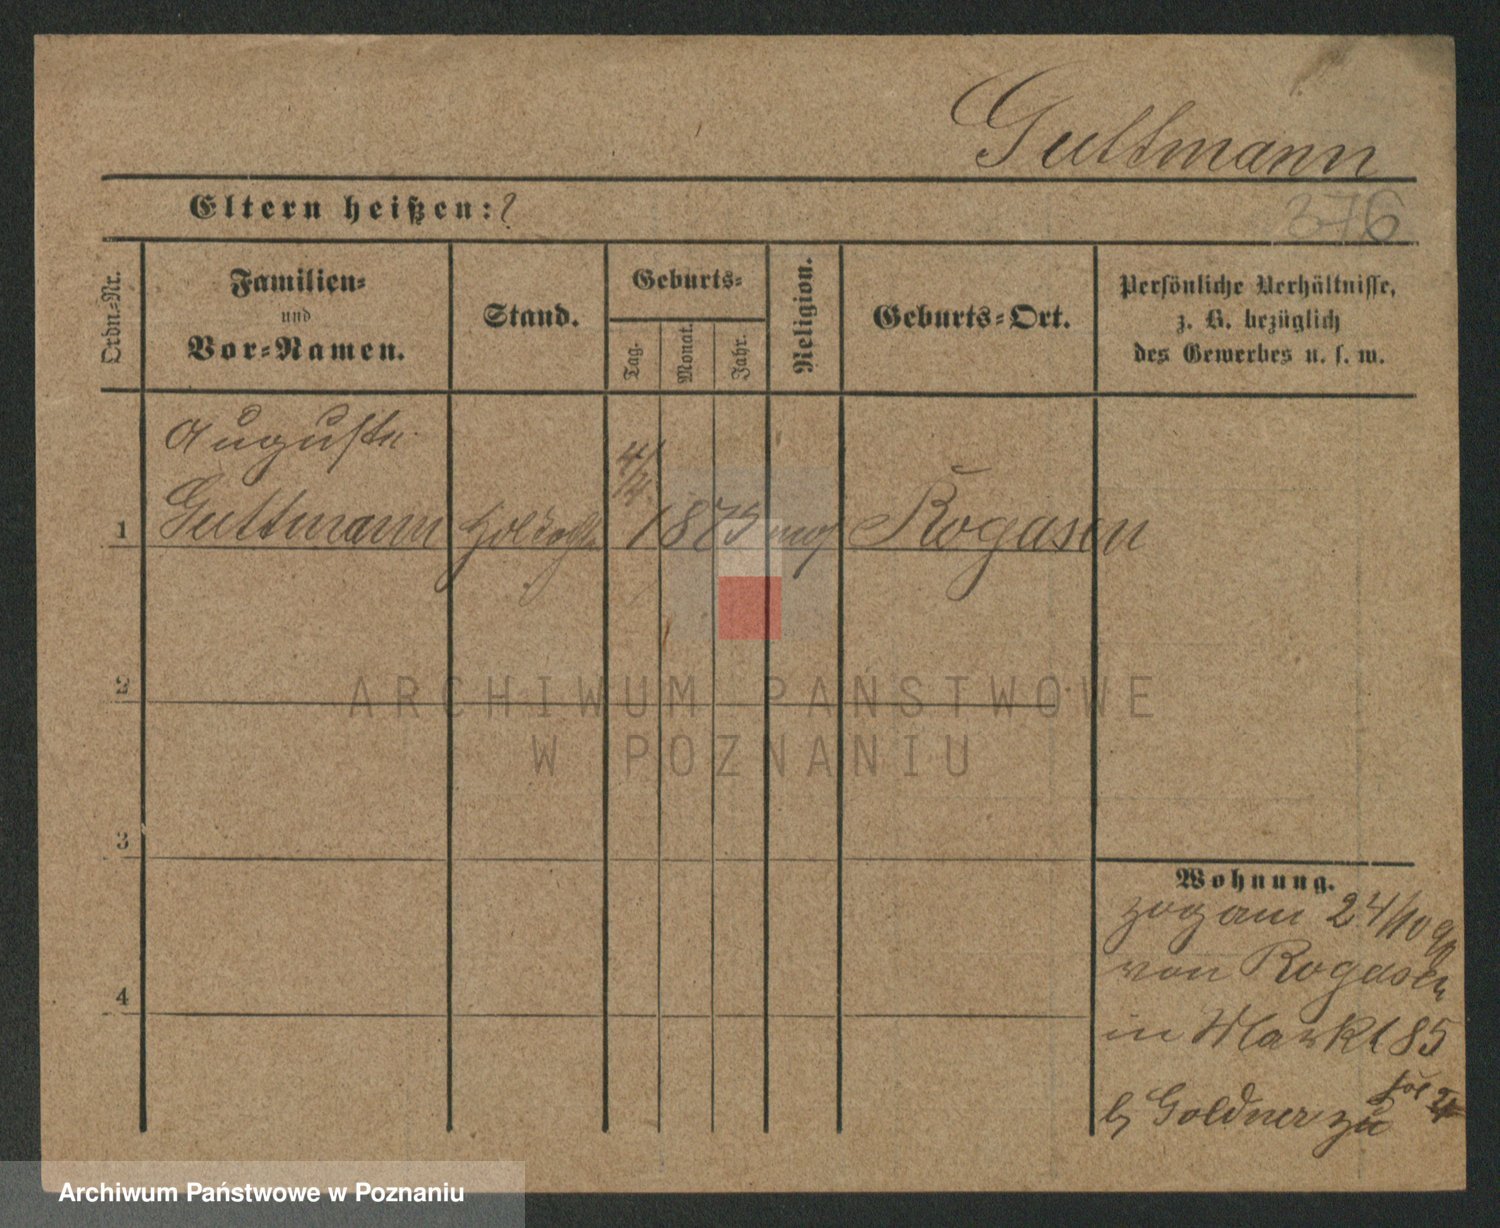 Guttmann
Eltern heißen: ?
376
Ordn.-Nr.
Familien-
und
Vor-Namen.
Stand.
Geburts-
Tag.
Monat.
Jahr.
Religion.
Geburts-Ort.
Persönliche Verhältnisse,
z. B. bezüglich
des Gewerbes u. s. w.
Auguste
4/12.
1 Guttmann 1873 mos Rogasen
2
ARCHIWUM PAŃSTWOWE
W POZNANIU
3
Wohnung.
zog am 24/10 90
von Rogasen
4
in Markt 85
b/ Goldner zu
Archiwum Państwowe w Poznaniu